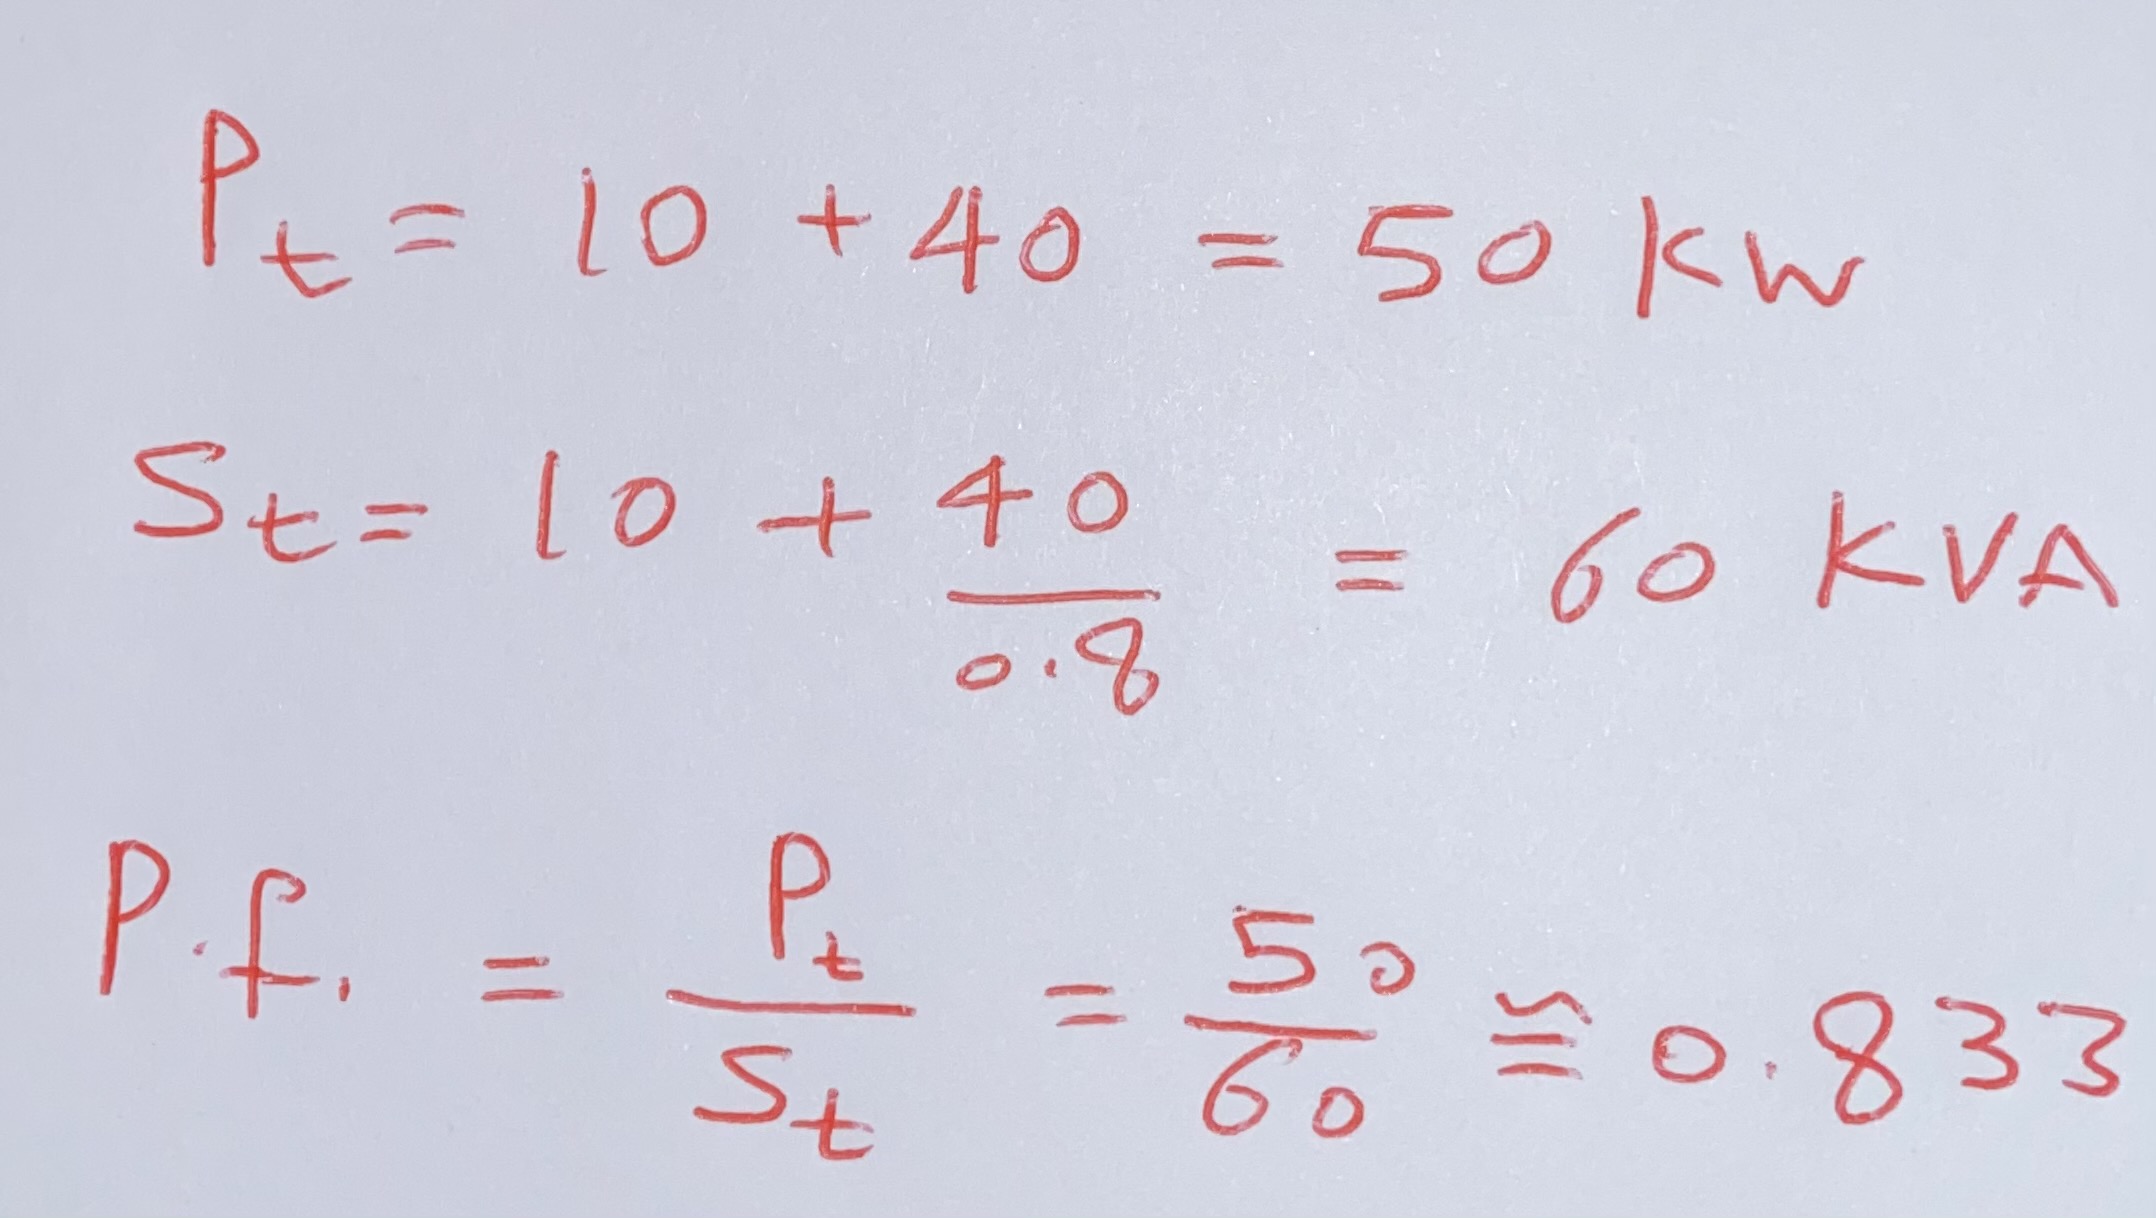 Pt = 10 + 40 = 50 KW
St = 10 + 40/0.8 = 60 KVA
P.f. = Pt/St = 50/60 ≅ 0.833